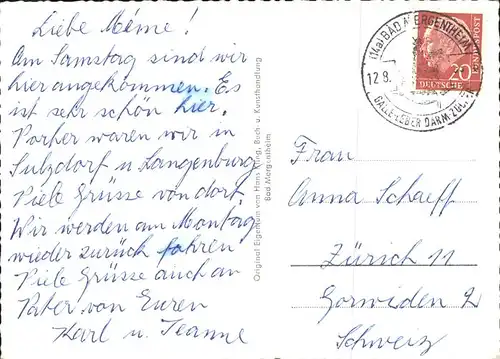 Liebe Méme!
Am Samstag sind wir
hier angekommen. Es
ist sehr schön hier.
Vorher waren wir in
Sulzdorf u. Langenburg
Viele Grüsse von dort.
Wir werden am Montag
wieder zurück fahren
Viele Grüsse auch an
Vater von Euren
Karl u. Jeanne
Original Eigentum von Hans Kling, Buch- u. Kunsthandlung
Bad Mergentheim
(14a) BAD MERGENTHEIM
12.8.
GALLE-LEBER DARM-ZUCKER
20
DEUTSCHE
BUNDESPOST
Frau
Anna Schaeff
Zürich 11
Gorwiden 2
Schweiz